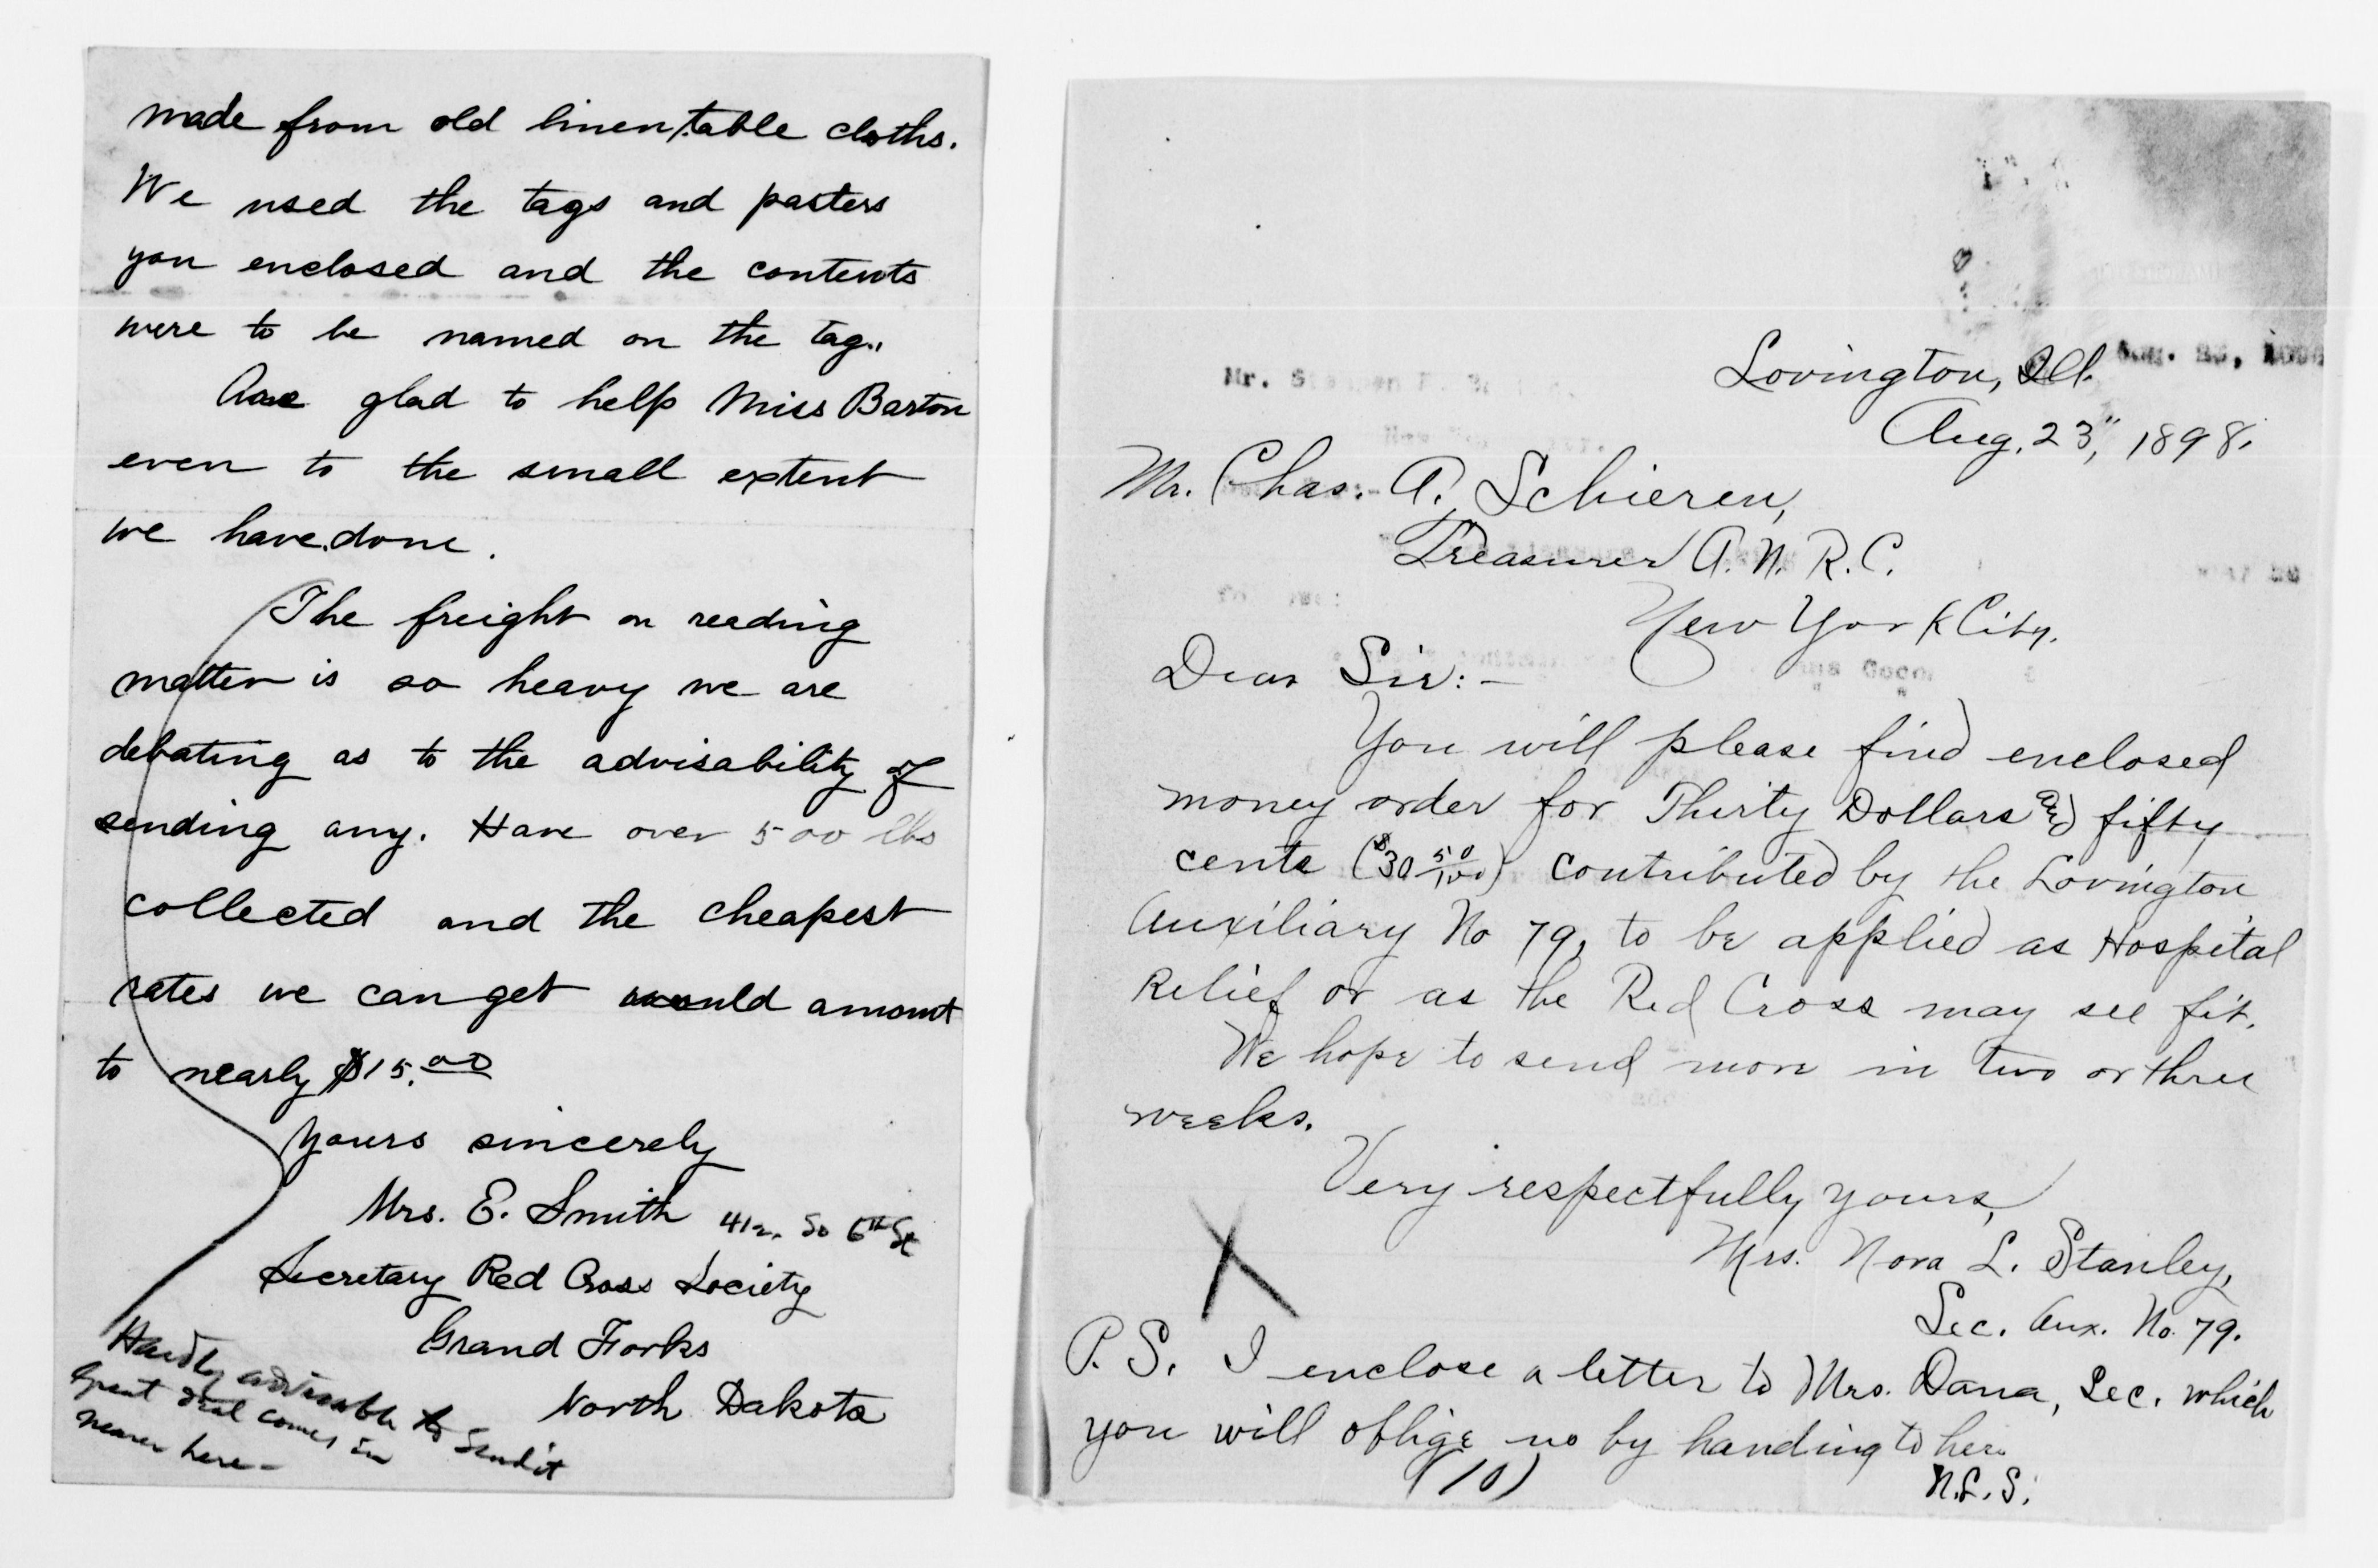 made from old linen table cloths.
We used the tags and pasters
you enclosed and the contents
were to be named on the tag.
Are glad to help Miss Barton
even to the small extent
we have done.
The freight on reading
matter is so heavy we are
debating as to the advisability of
sending any. Have over 500 lbs
collected and the cheapest
rates we can get would amount
to nearly $15.00
Yours sincerely
Mrs. E. Smith 412. So 6th St
Secretary Red Cross Society
Grand Forks
North Dakota
Hardly advisable to send it
Great deal comes in
nearer here-
Lovington, Ill.
Aug. 23", 1898.
Mr. Chas. A. Schieren,
Treasurer A. N. R. C.
New York City.
Dear Sir:-
You will please find enclosed
money order for Thirty Dollars and fifty
cents ($30 50/100) contributed by the Lovington
Auxiliary No 79, to be applied as Hospital
Relief or as the Red Cross may see fit.
We hope to send more in two or three
weeks.
Very respectfully yours,
Mrs. Nora L. Stanley,
Sec. Aux. No. 79.
X
P. S. I enclose a letter to Mrs. Dana, Sec. which
you will oblige us by handing to her.
N.L.S.
(10)